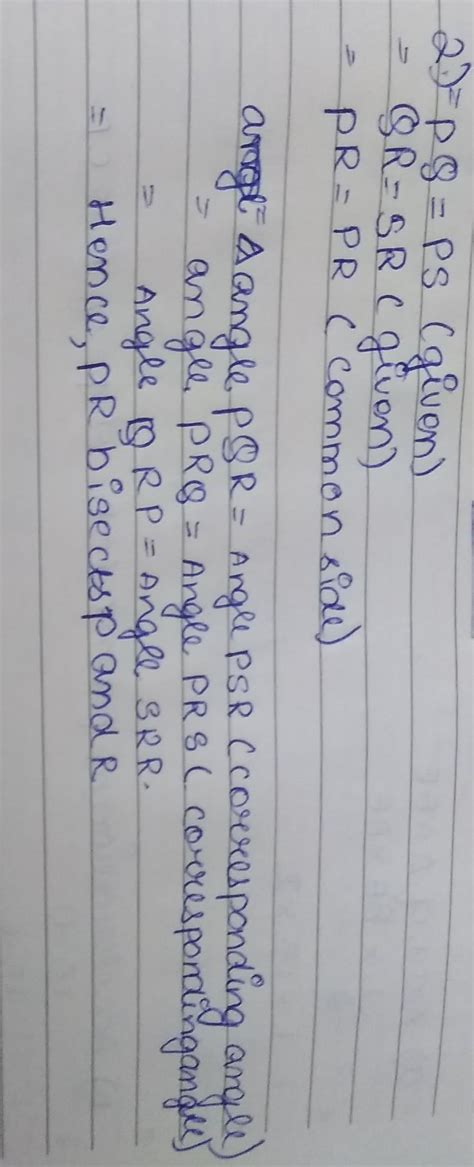 2) = PQ = PS (given)
= QR = SR (given)
= PR = PR (common side)
= Δ angle PQR = Angle PSR (corresponding angle)
= angle, PRQ = Angle PRS (corresponding angle)
= Angle QRP = Angle SRR.
=) Hence, PR bisects P and R